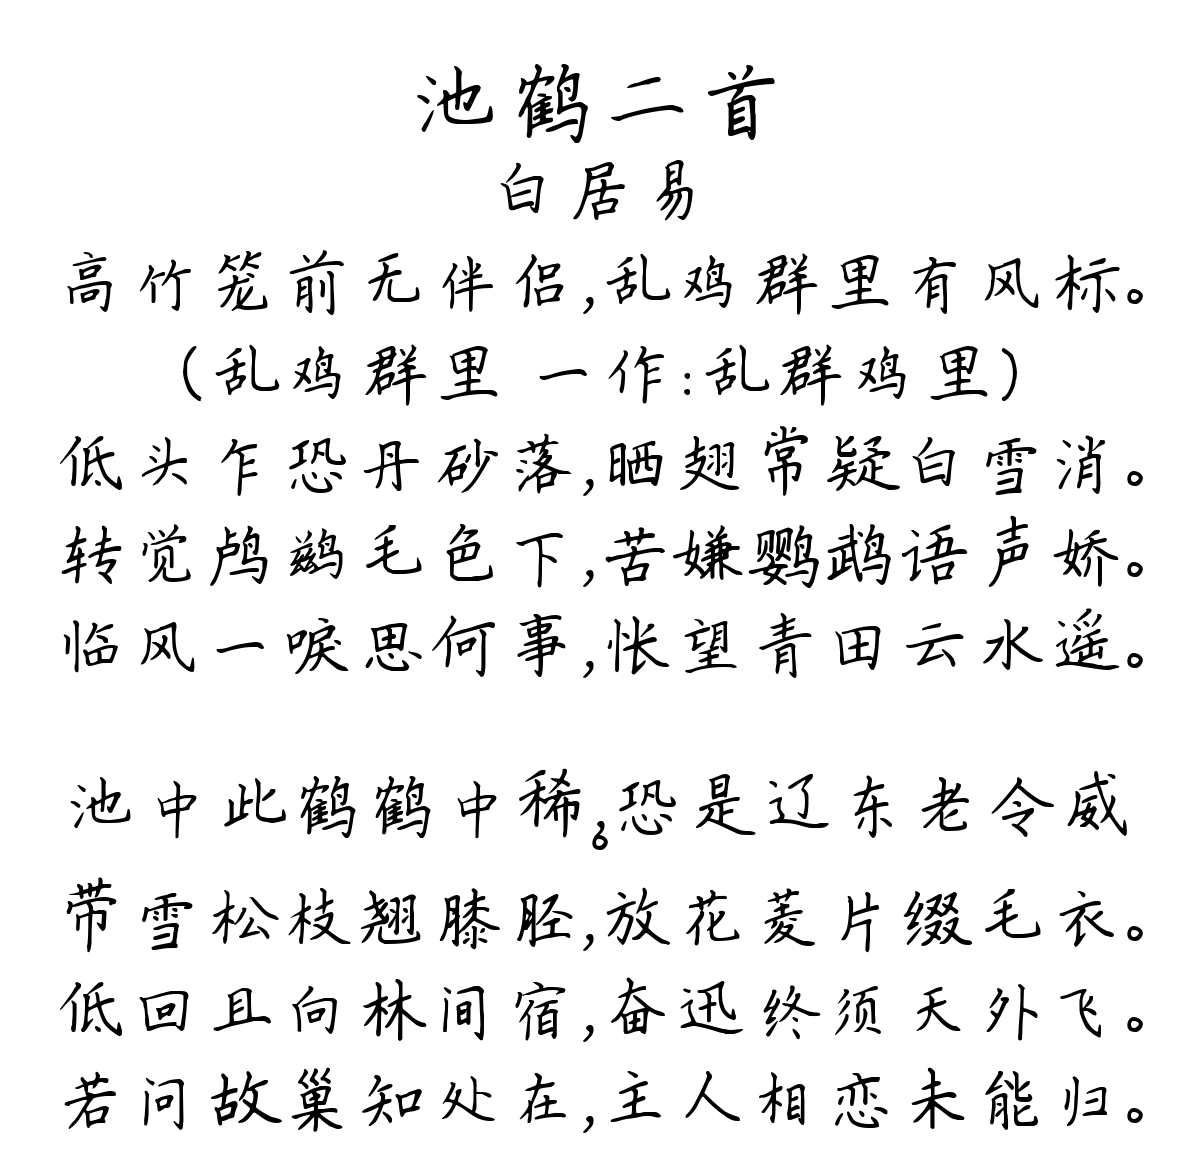 池鹤二首
白居易
高竹笼前无伴侣,乱鸡群里有风标。
(乱鸡群里 一作:乱群鸡里)
低头乍恐丹砂落,晒翅常疑白雪消。
转觉鸬鹚毛色下,苦嫌鹦鹉语声娇。
临风一唳思何事,怅望青田云水遥。
池中此鹤鹤中稀。恐是辽东老令威
带雪松枝翘膝胫,放花菱片缀毛衣。
低回且向林间宿,奋迅终须天外飞。
若问故巢知处在,主人相恋未能归。